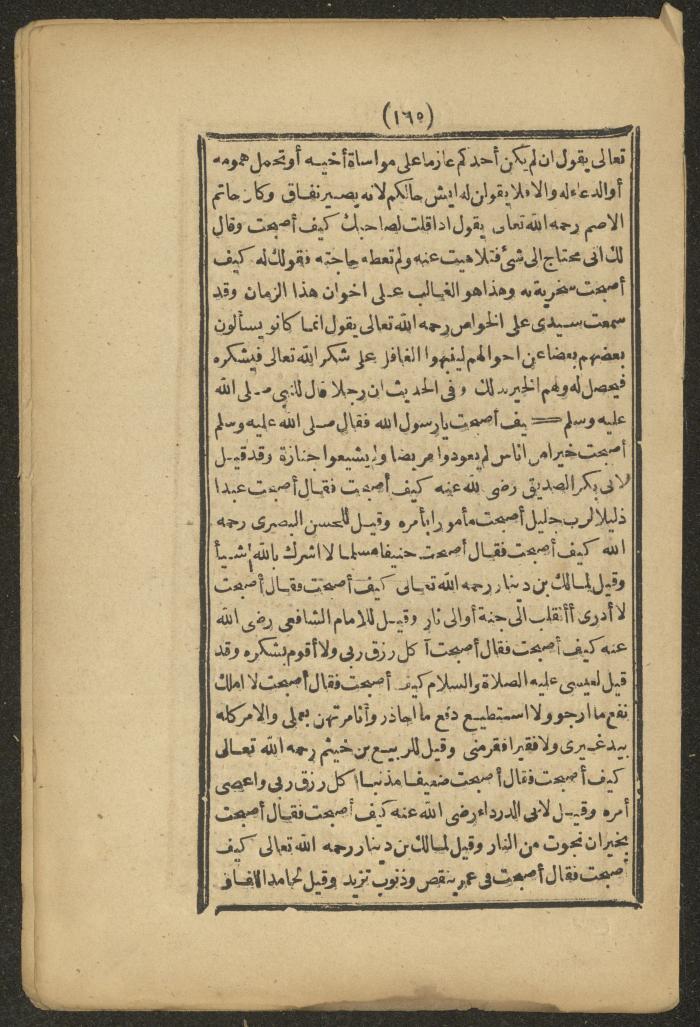 (١٦٥)
تعالى يقول ان لم يكن أحدكم عازما على مواساة أخيه أو تحمل همومه
أو الدعاء له والا فلا يقولن له ايش حالكم لانه يصير نفاق وكان حاتم
الاصم رحمه الله تعالى يقول اذا قلت لصاحبك كيف أصبحت وقال
لك انى محتاج الى شئ فتلاهيت عنه ولم تعطه حاجته فقولك له كيف
أصبحت سخرية به وهذا هو الغالب على اخوان هذا الزمان وقد
سمعت سيدى على الخواص رحمه الله تعالى يقول انما كانو يسألون
بعضهم بعضا عن احوالهم لينبهوا الغافل على شكر الله تعالى فيشكره
فيحصل له ولهم الخير بذلك وفى الحديث ان رجلا قال للنبى صلى الله
عليه وسلم كيف أصبحت يا رسول الله فقال صلى الله عليه وسلم
أصبحت خيرا من اناس لم يعودوا مريضا ولم يشيعوا جنازة وقد قيل
لابى بكر الصديق رضى الله عنه كيف أصبحت فقال أصبحت عبدا
ذليلا لرب جليل أصبحت مأمورا بأمره وقيل للحسن البصرى رحمه
الله كيف أصبحت فقال أصبحت حنيفا مسلما لا اشرك بالله شيأ
وقيل لمالك بن دينار رحمه الله تعالى كيف أصبحت فقال أصبحت
لا أدرى أأنقلب الى جنة أو الى نار وقيل للامام الشافعى رضى الله
عنه كيف أصبحت فقال أصبحت آكل رزق ربى ولا أقوم بشكره وقد
قيل لعيسى عليه الصلاة والسلام كيف أصبحت فقال أصبحت لا املك
نفع ما ارجو ولا استطيع دفع ما احاذر وأنا مرتهن بعملى والامر كله
بيد غيرى ولا فقير افقر منى وقيل للربيع بن خيثم رحمه الله تعالى
كيف أصبحت فقال أصبحت ضعيفا مذنبا اكل رزق ربى واعصى
أمره وقيل لابى الدرداء رضى الله عنه كيف أصبحت فقال أصبحت
بخير ان نجوت من النار وقيل لمالك بن دينار رحمه الله تعالى كيف
أصبحت فقال أصبحت فى عمر ينقص وذنوب تزيد وقيل لحامد اللفاف